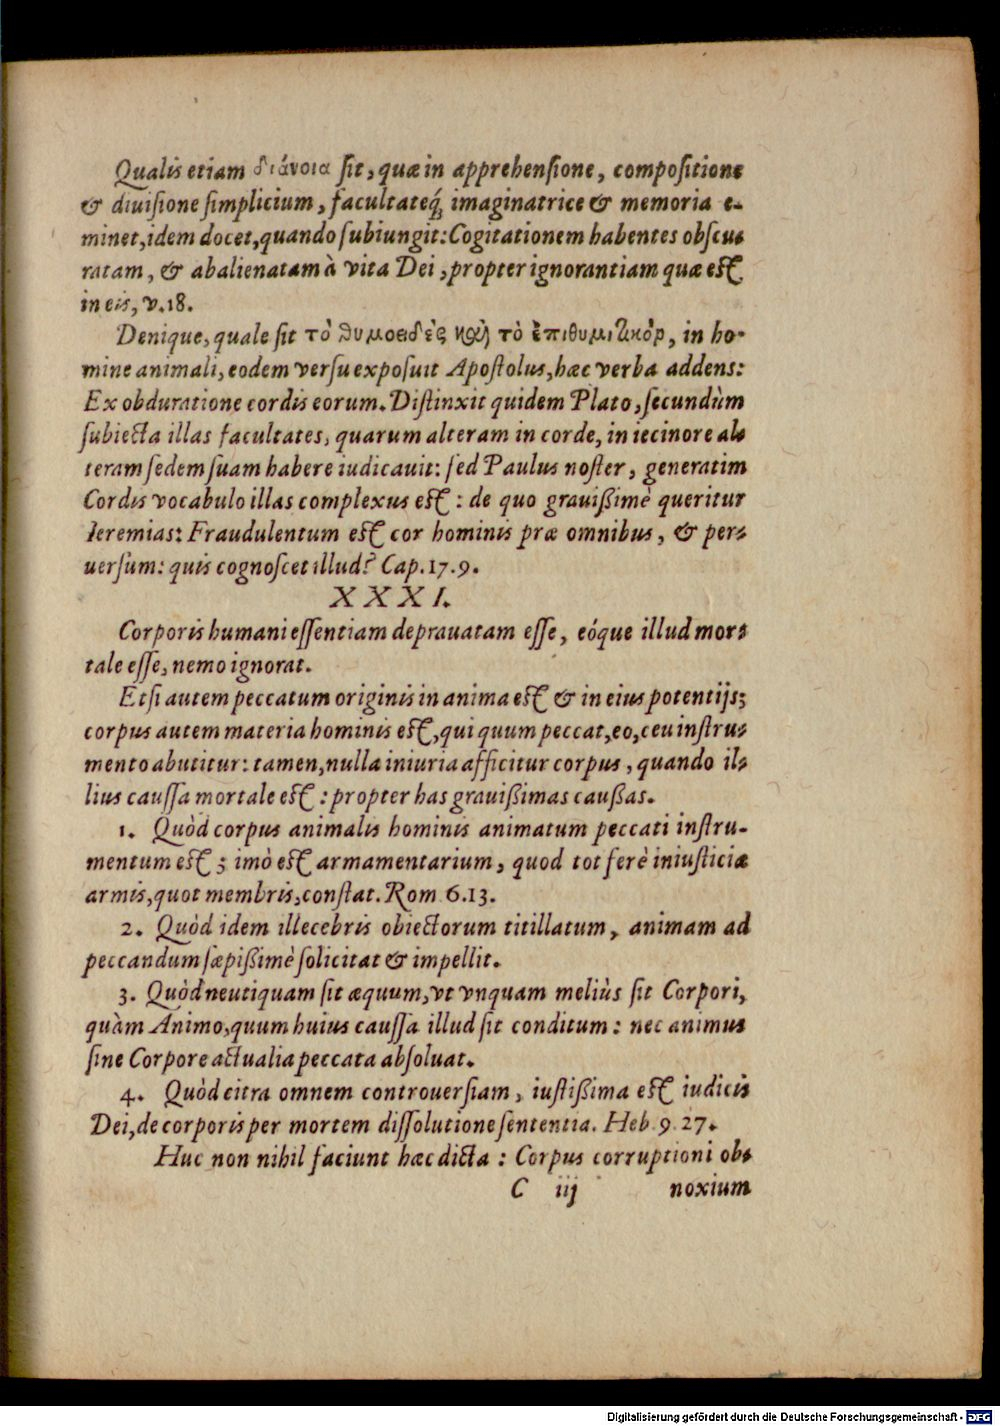 Qualis etiam διάνοια sit, quæ in apprehensione, compositione
& diuisione simplicium, facultateq́; imaginatrice & memoria e-
minet, idem docet, quando subiungit: Cogitationem habentes obscu-
ratam, & abalienatam à vita Dei, propter ignorantiam quæ est
in eis, v. 18.
Denique, quale sit τὸ θυμοειδὲς καὶ τὸ ἐπιθυμιτικὸν, in ho-
mine animali, eodem versu exposuit Apostolus, hæc verba addens:
Ex obduratione cordis eorum. Distinxit quidem Plato, secundùm
subiecta illas facultates, quarum alteram in corde, in iecinore al-
teram sedem suam habere iudicauit: sed Paulus noster, generatim
Cordis vocabulo illas complexus est: de quo grauißimè queritur
Ieremias: Fraudulentum est cor hominis præ omnibus, & per-
uersum: quis cognoscet illud? Cap. 17. 9.
XXXI.
Corporis humani essentiam deprauatam esse, eóque illud mor-
tale esse, nemo ignorat.
Etsi autem peccatum originis in anima est & in eius potentijs;
corpus autem materia hominis est, qui quum peccat, eo, ceu instru-
mento abutitur: tamen, nulla iniuria afficitur corpus, quando il-
lius caussa mortale est: propter has grauißimas caußas.
1. Quòd corpus animalis hominis animatum peccati instru-
mentum est; imò est armamentarium, quod tot ferè iniusticiæ
armis, quot membris, constat. Rom 6. 13.
2. Quòd idem illecebris obiectorum titillatum, animam ad
peccandum sæpißimè solicitat & impellit.
3. Quòd neutiquam sit æquum, vt vnquam meliùs sit Corpori,
quàm Animo, quum huius caussa illud sit conditum: nec animus
sine Corpore actualia peccata absoluat.
4. Quòd citra omnem controuersiam, iustißima est iudicis
Dei, de corporis per mortem dissolutione sententia. Heb 9. 27.
Huc non nihil faciunt hæc dicta: Corpus corruptioni ob-
C iij noxium
Digitalisierung gefördert durch die Deutsche Forschungsgemeinschaft - DFG